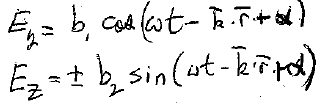 E_y = b_1 cos(ωt - k̄·r̄ + α)
E_z = ± b_2 sin(ωt - k̄·r̄ + α)